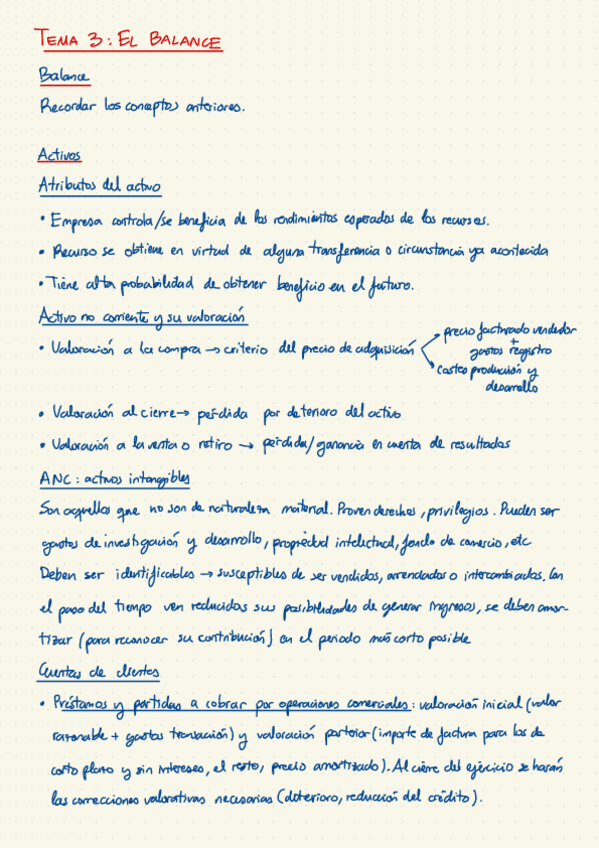 TEMA 3: EL BALANCE
Balance
Recordar los conceptos anteriores.
Activos
Atributos del activo
• Empresa controla/se beneficia de los rendimientos esperados de los recursos.
• Recurso se obtiene en virtud de alguna transferencia o circunstancia ya acontecida
• Tiene alta probabilidad de obtener beneficio en el futuro.
Activo no corriente y su valoración
• Valoración a la compra → criterio del precio de adquisición
precio facturado vendedor
+
gastos registro
costes producción y
desarrollo
• Valoración al cierre → pérdida por deterioro del activo
• Valoración a la venta o retiro → pérdida/ganancia en cuenta de resultados
ANC: activos intangibles
Son aquellos que no son de naturaleza material. Proven derechos, privilegios. Pueden ser
gastos de investigación y desarrollo, propiedad intelectual, fondo de comercio, etc
Deben ser identificables → susceptibles de ser vendidos, arrendados o intercambiados. Con
el paso del tiempo ven reducidas sus posibilidades de generar ingresos, se deben amor-
tizar (para reconocer su contribución) en el periodo más corto posible
Cuentas de clientes
• Préstamos y partidas a cobrar por operaciones comerciales: valoración inicial (valor
razonable + gastos transacción) y valoración posterior (importe de factura para los de
corto plazo y sin intereses, el resto, precio amortizado). Al cierre del ejercicio se harán
las correcciones valorativas necesarias (deterioro, reducción del crédito).